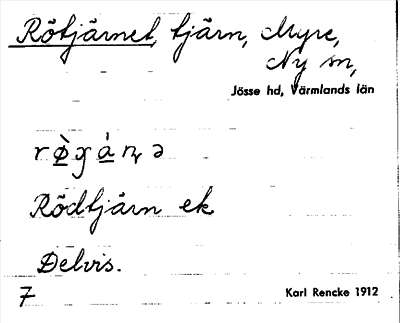 Rötjärnet, tjärn, Myre,
Ny sn,
Jösse hd, Värmlands län
Rödtjärn ek
Delvis.
7
Karl Rencke 1912